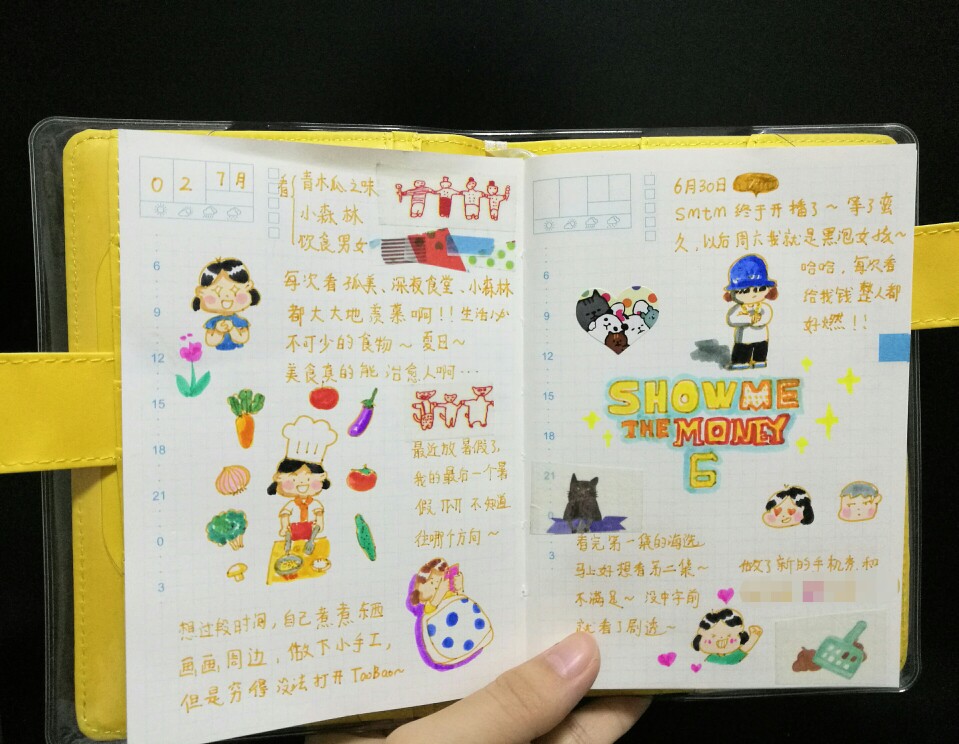 02 7月
看 青木瓜之味
小森林
饮食男女
每次看孤美、深夜食堂、小森林
都大大地羡慕啊!!生活必
不可少的食物~夏日~
美食真的能治愈人啊…
最近放暑假了,
我的最后一个暑
假 不知道
往哪个方向~
想过段时间,自己煮煮东西
画画周边,做下小手工,
但是穷得没法打开TaoBao~
6
9
12
15
18
21
0
3
6月30日
SMTM 终于开播了~等了蛮
久,以后周六我就是黑泡女孩~
哈哈,每次看
给我钱整人都
好燃!!
SHOW ME
THE MONEY
6
看完第一集的海选
马上好想看第二集~
不满足~没中字前
就看了剧透~
做了新的手机壳和
6
9
12
15
18
21
3